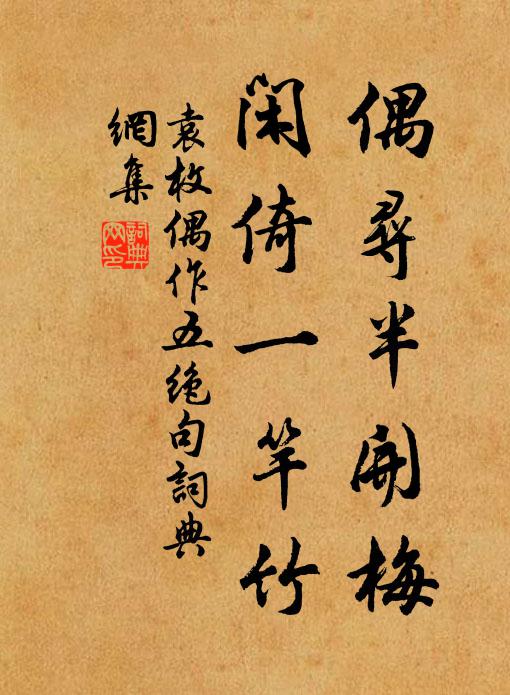 偶尋半開梅
閑倚一竿竹
袁枚偶作五絕句詞典
網集
詞典
网印